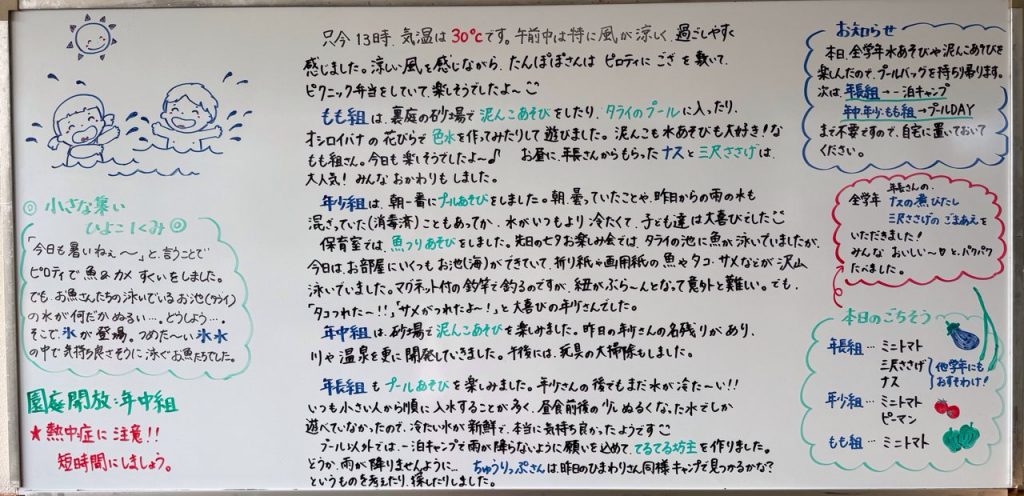 只今13時、気温は30℃です。午前中は特に風が涼しく、過ごしやすく
感じました。涼しい風を感じながら、たんぽぽさんは ピロティに ござ を敷いて、
ピクニック弁当をしていて、楽しそうでしたよ〜
もも組は、裏庭の砂場で泥んこあそびをしたり、タライのプールに入ったり、
オシロイバナの花びらで色水を作ってみたりして遊びました。泥んこも水あそびも大好き!な
もも組さん。今日も楽しそうでしたよ〜♪ お昼に、年長さんからもらったナスと三尺ささげは、
大人気! みんなおかわりもしました。
年少組は、朝一番にプールあそびをしました。朝、曇っていたことや、昨日からの雨の水も
混ざっていた(消毒済)こともあってか、水がいつもより冷たくて、子ども達は大喜びでした
保育室では、魚つりあそびをしました。先日の七夕お楽しみ会では、タライの池に魚が泳いでいましたが、
今日は、お部屋にいくつもお池(海)ができていて、折り紙や画用紙の魚やタコ・サメなどが沢山
泳いでいました。マグネット付の釣竿で釣るのですが、紐がぶら〜んとなって意外と難しい。でも、
「タコつれた〜!!」「サメがつれたよー!」と大喜びの年少さんでした。
年中組は、砂場で泥んこあそびを楽しみました。昨日の年少さんの名残りがあり、
川や温泉を更に開発していきました。午後には、玩具の大掃除もしました。
年長組もプールあそびを楽しみました。年少さんの後でもまだ水が冷た〜い!!
いつも小さい人から順に入水することが多く、昼食前後の少しぬるくなった水でしか
遊べていなかったので、冷たい水が新鮮で、本当に気持ち良かったようです
プール以外では、一泊キャンプで雨が降らないように願いを込めて、てるてる坊主を作りました。
どうか、雨が降りませんように… ちゅうりっぷさんは昨日のひまわりさん同様キャンプで見つかるかな?
というものを考えたり、探したりしました。
◎ 小さな集い
ひよこ1くみ ◎
「今日も暑いねぇ〜」と、言うことで
ピロティで魚&カメすくいをしました。
でも、お魚さんたちの泳いでいるお池(タライ)
の水が何だかぬるい…。どうしよう…。
そこで、氷が登場。つめた〜い氷水
の中で気持ち良さそうに泳ぐお魚たちでした。
園庭開放:年中組
★熱中症に注意!!
短時間にしましょう。
お知らせ
本日、全学年水あそびや泥んこあそびを
楽しんだので、プールバッグを持ち帰ります。
次は、年長組→一泊キャンプ
年中.年少.もも組→プールDAY
まで不要ですので、自宅に置いておいて
ください。
全学年
年長さんの、
ナスの煮びたし
三尺ささげのごまあえを
いただきました!
みんなおいしい〜♡とパクパク
たべました。
本日のごちそう
年長組…ミニトマト
三尺ささげ
ナス
他学年にも
おすそわけ!
年少組…ミニトマト
ピーマン
もも組…ミニトマト